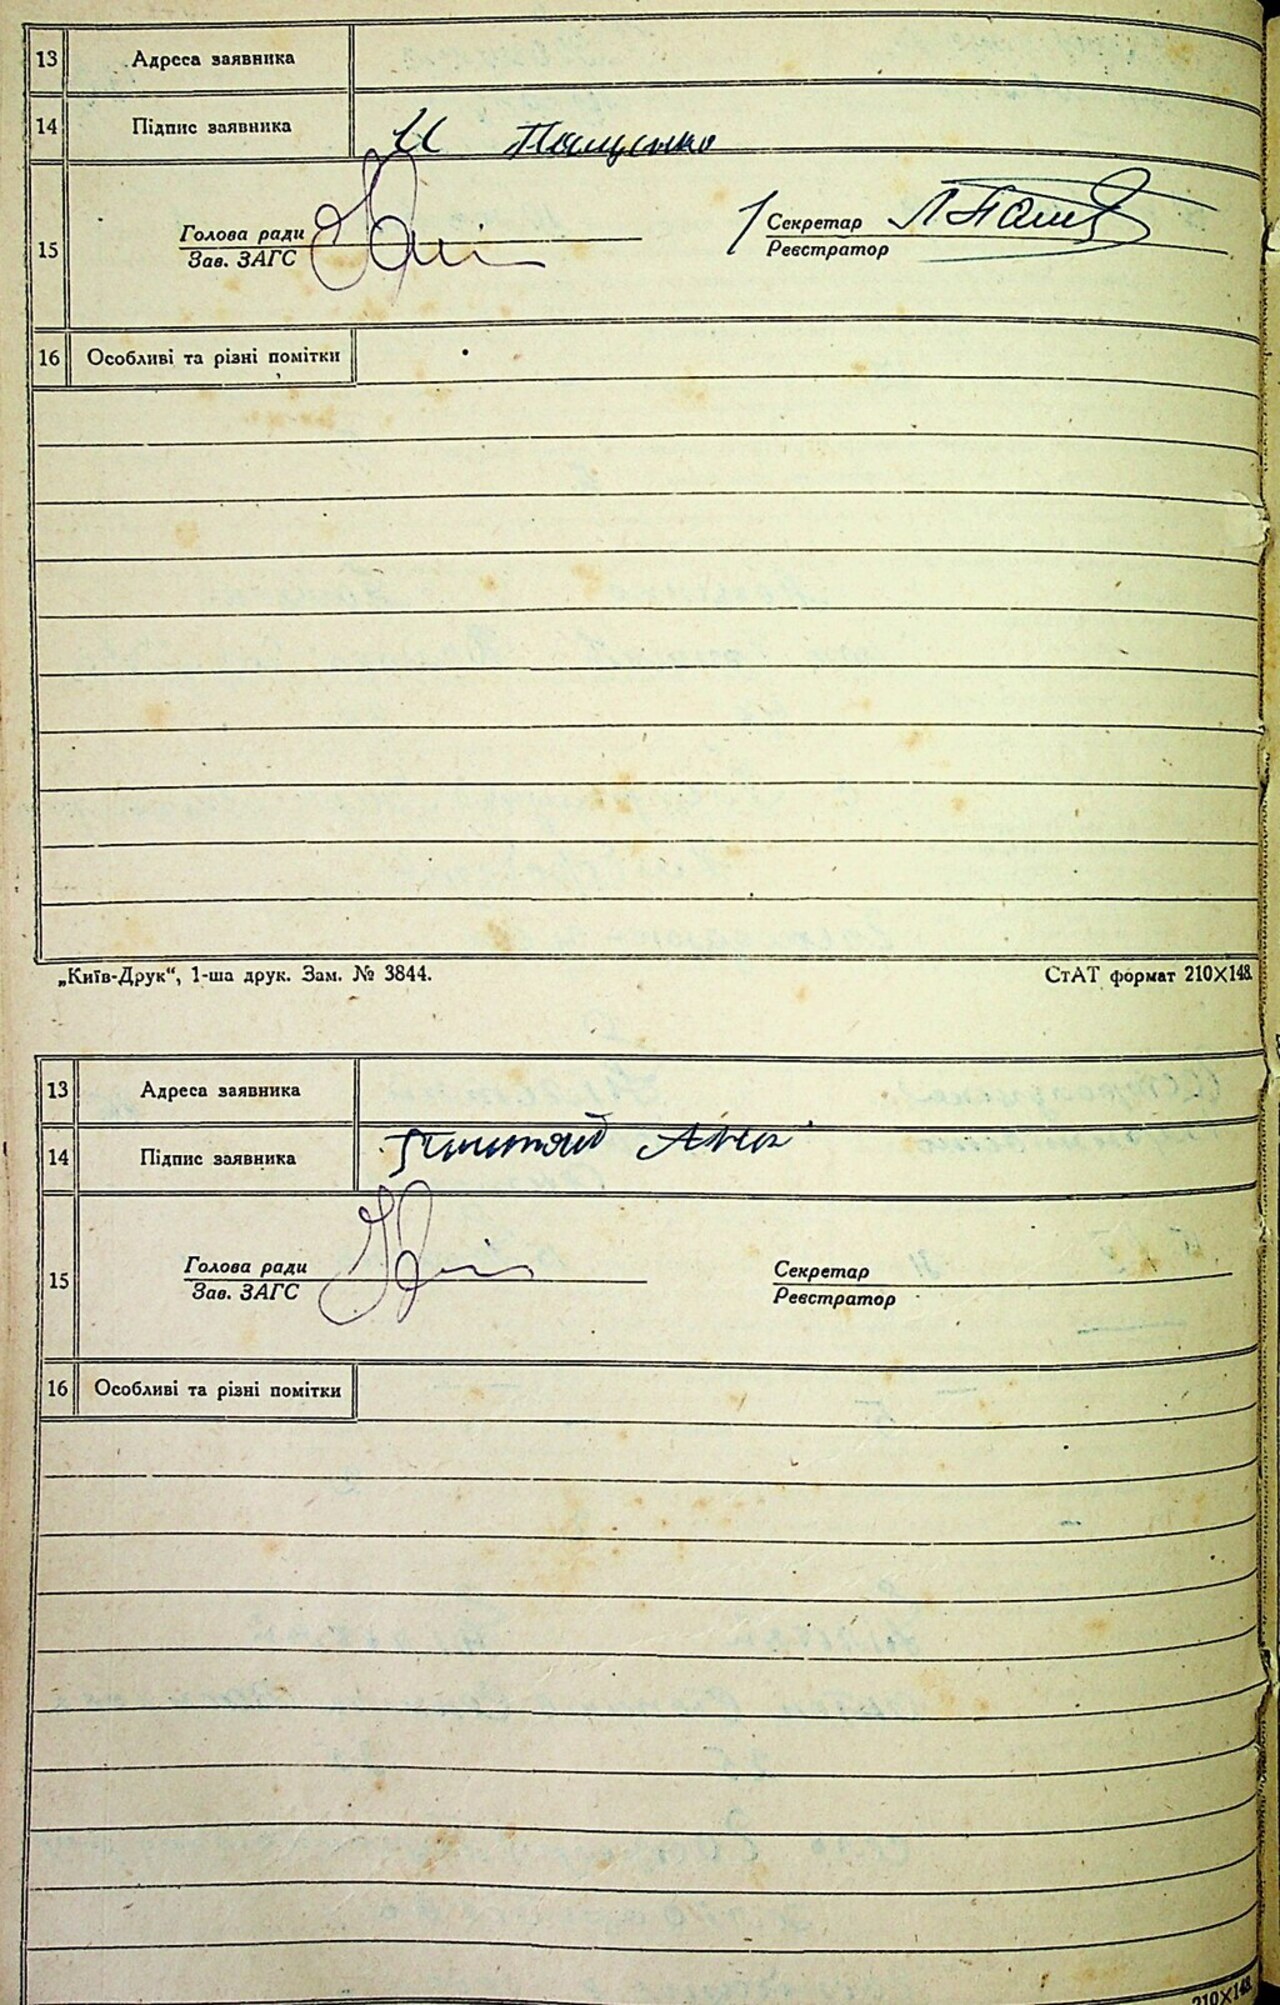 13 Адреса заявника
14 Підпис заявника И Пащенко
15 Голова ради Секретар
Зав. ЗАГС Реєстратор
16 Особливі та різні помітки
„Київ-Друк“, 1-ша друк. Зам. № 3844. СтАТ формат 210×148.
13 Адреса заявника
14 Підпис заявника
15 Голова ради Секретар
Зав. ЗАГС Реєстратор
16 Особливі та різні помітки
210×148.